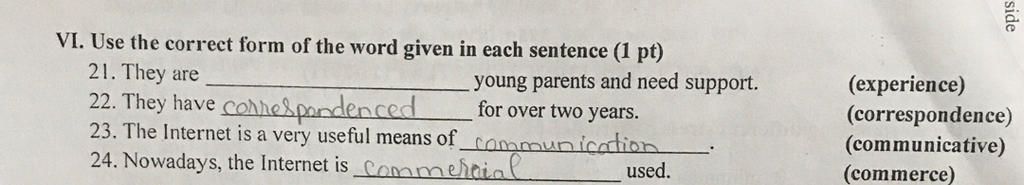 side
VI. Use the correct form of the word given in each sentence (1 pt)
21. They are ____________ young parents and need support. (experience)
22. They have correspondenced for over two years. (correspondence)
23. The Internet is a very useful means of communication. (communicative)
24. Nowadays, the Internet is commercial used. (commerce)